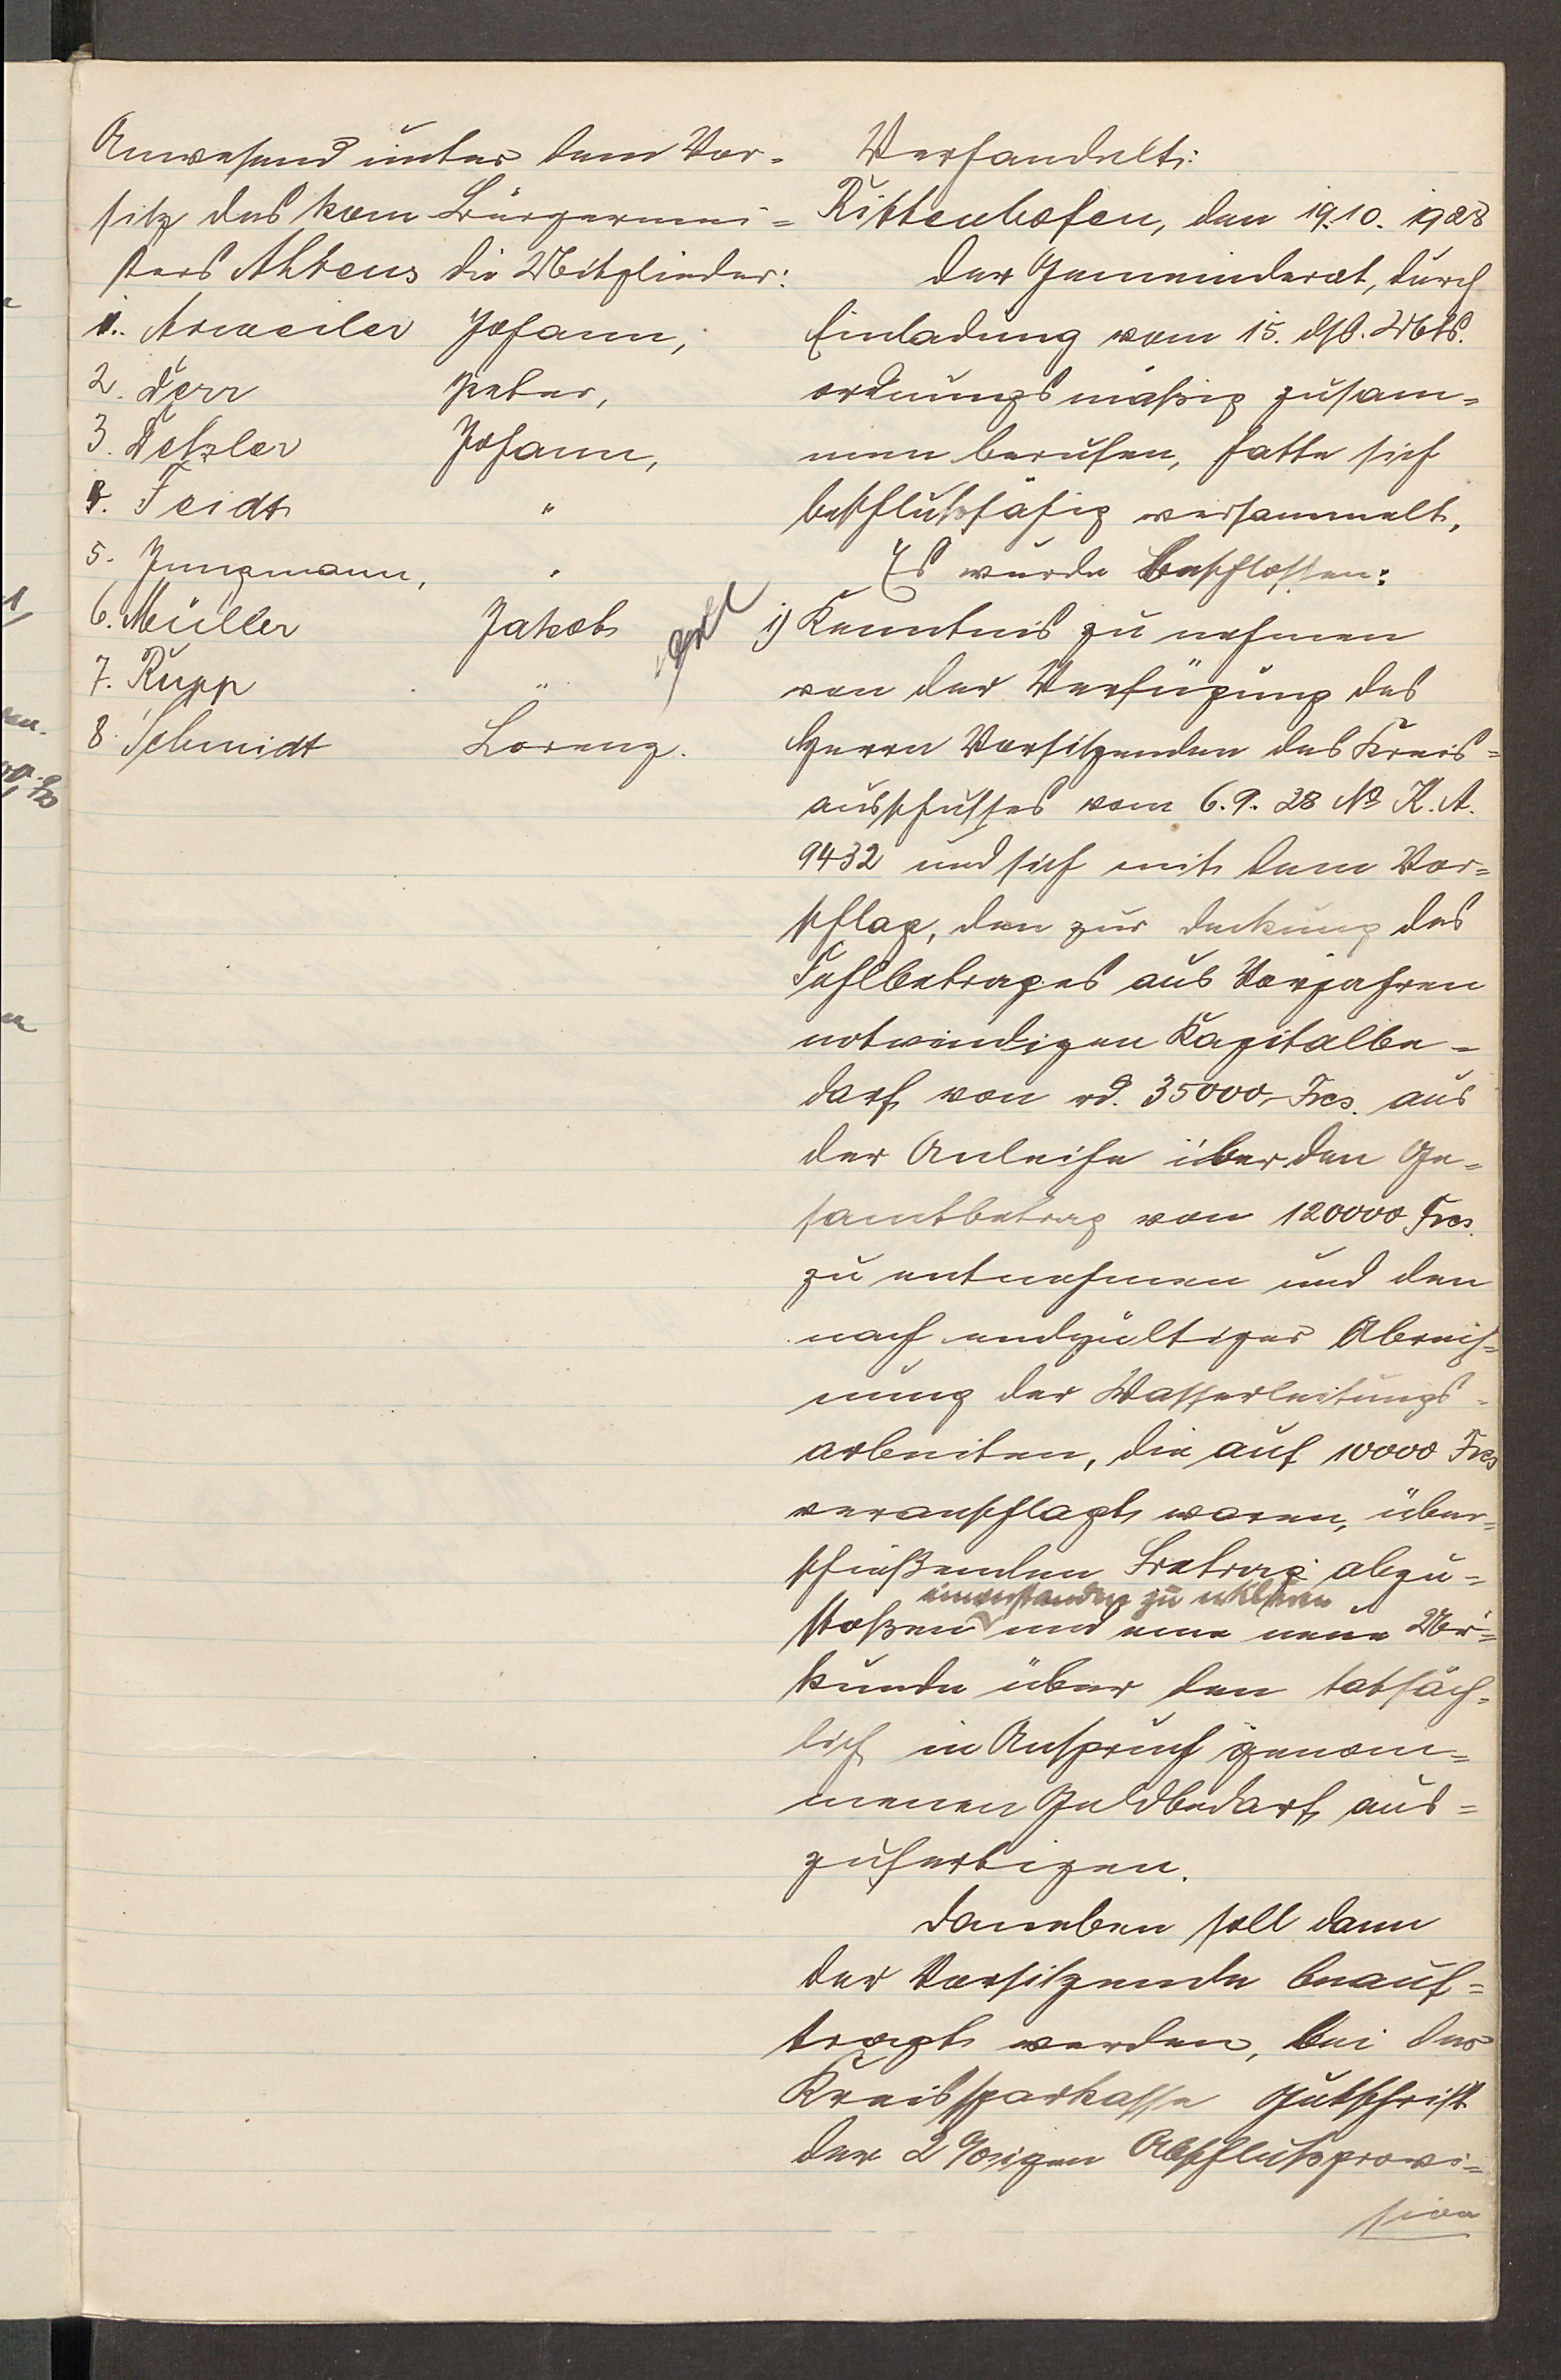 Anwesend unter dem Vor-
sitz des kom Bürgermei-
sters Ahrens die Mitglieder:
1. Arweiler Johann,
2. Dörr Peter,
3. Detzler Johann,
4. Feidt "
5. Jungmann, "
6. Müller Jakob
7. Rupp "
8. Schmidt Lorenz.
Verhandelt:
Rittenhofen, den 19.10.1928
Der Gemeinderat, durch
Einladung vom 15. dss. Mts.
ordnungsmäßig zusam-
men berufen, hatte sich
beschlußfähig versammelt.
Es wurde beschlossen:
1) Kenntnis zu nehmen
von der Verfügung des
Herrn Vorsitzenden des Kreis-
ausschusses vom 6.9.28 No K.A.
9432 und sich mit dem Vor-
schlag, den zur Deckung des
Fehlbetrages aus Vorjahren
notwendigen Kapitalbe-
darf von rd. 35000,- Frcs. aus
der Anleihe über den Ge-
samtbetrag von 120000 Frcs.
zu entnehmen und den
nach endgültiger Abrech-
nung der Wasserleitungs-
arbeiten, die auf 10000 Frcs
veranschlagt waren, über-
schießenden Betrag abzu-
einverstanden zu erklären
stoßen und eine neue Ur-
kunde über den tatsäch-
lich in Anspruch genom-
menen Geldbedarf aus-
zufertigen.
Daneben soll dann
der Vorsitzende beauf-
tragt werden, bei der
Kreissparkasse Gutschrift
der 2 %igen Abschlußprovi-
sion